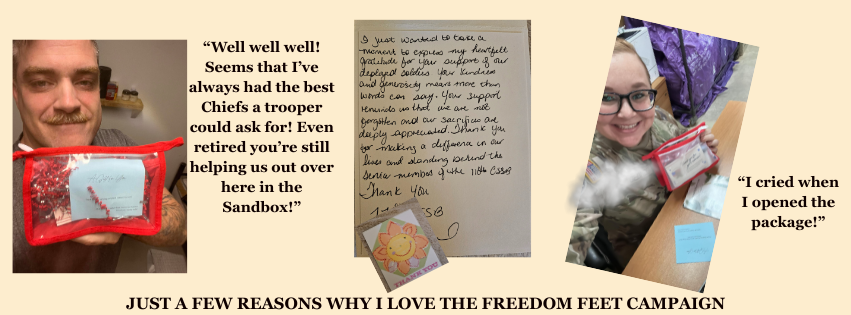 “Well well well!
Seems that I’ve
always had the best
Chiefs a trooper
could ask for! Even
retired you’re still
helping us out over
here in the
Sandbox!”
I just wanted to take a
moment to express my heartfelt
gratitude for your support of our
deployed soldiers. Your kindness
and generosity means more than
words can say. Your support
reminds us that we are not
forgotten and our sacrifices are
deeply appreciated. Thank you
for making a difference in our
lives and standing behind the
service members of the 11th ESSB
Thank you
SSB
THANK YOU
“I cried when
I opened the
package!”
JUST A FEW REASONS WHY I LOVE THE FREEDOM FEET CAMPAIGN